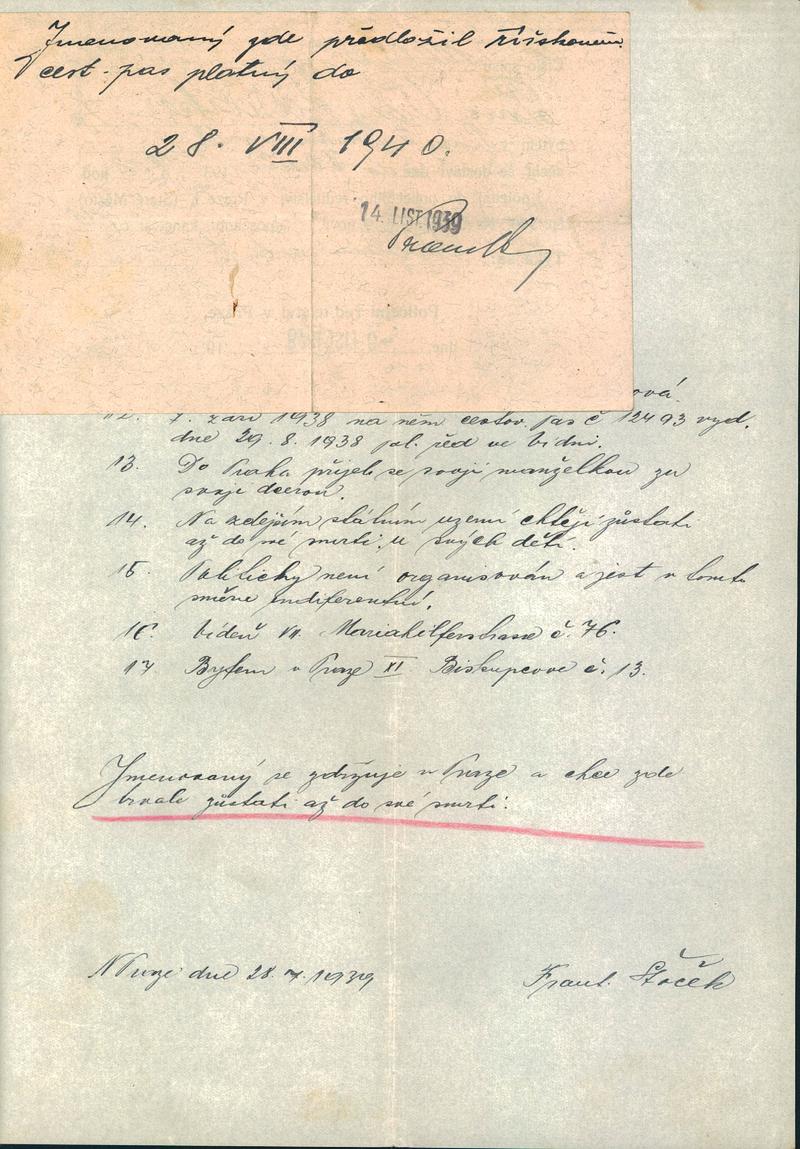 Jmenovaný zde předložil říšskoněm.
cest. pas platný do
28. VIII 1940.
14. LIST. 1939
ová.
12. 7. září 1938 na něm. cestov. pas č 12493 vyd.
dne 29. 8. 1938 pol. řed ve Vídni.
13. Do Praha přijeli se svojí manželkou za
svojí dcerou.
14. Na zdejším státním uzemí chtějí zůstati
až do své smrti, u svých dětí.
15. Politicky není organisován a jest v tomto
směru indiferentní.
16. Vídeň VII. Mariahilferstrasse č. 76.
17 Bytem v Praze XI Biskupcova č. 13.
Jmenovaný se zdržuje v Praze a chce zde
trvale zůstati až do své smrti.
V Praze dne 28. 7. 1939
Frant. Stoček